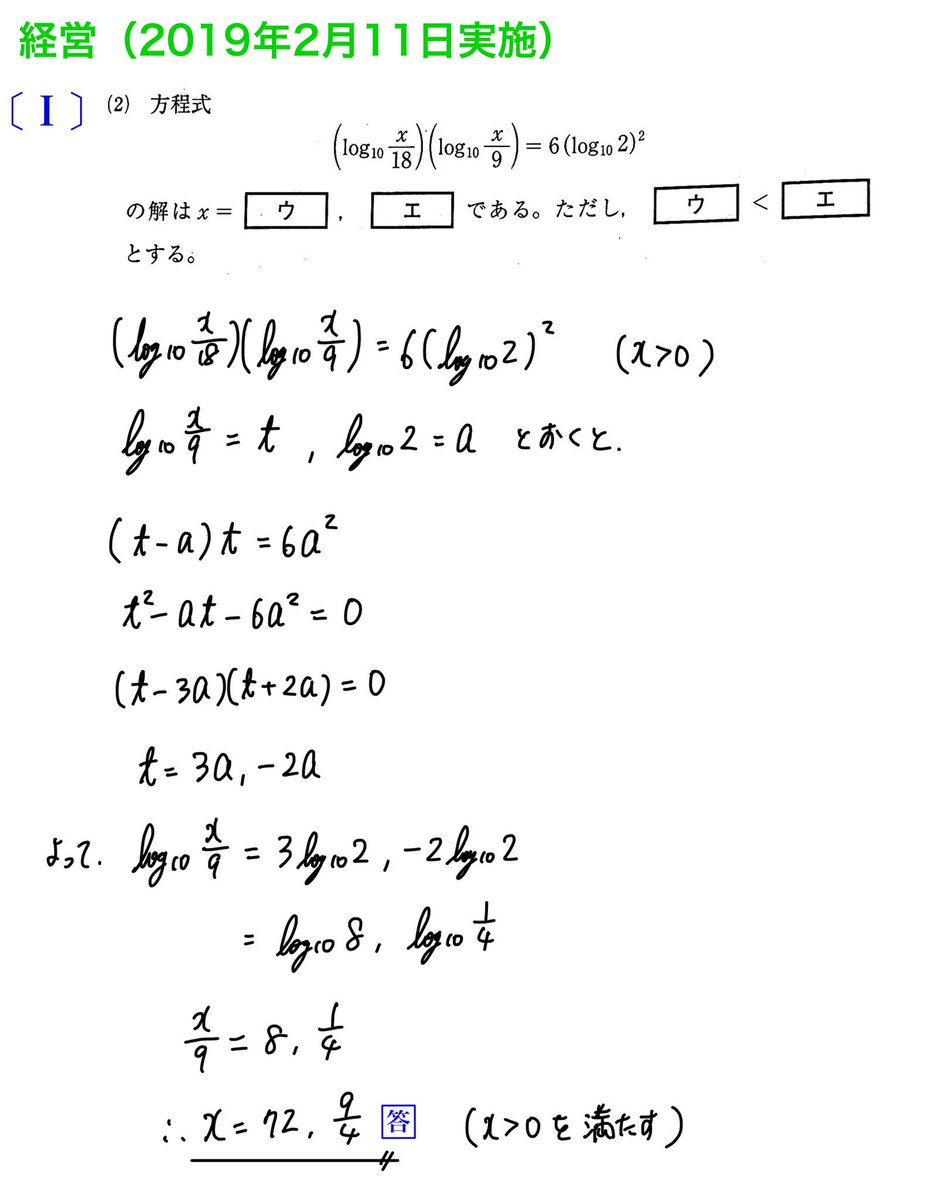 経営（2019年2月11日実施）
〔 I 〕 (2) 方程式
(log₁₀ x/18)(log₁₀ x/9) = 6(log₁₀ 2)²
の解は x = ウ , エ である。ただし, ウ < エ
とする。
(log₁₀ x/18)(log₁₀ x/9) = 6(log₁₀ 2)² (x>0)
log₁₀ x/9 = t , log₁₀ 2 = a とおくと.
(t-a)t = 6a²
t² - at - 6a² = 0
(t-3a)(t+2a) = 0
t = 3a, -2a
よって. log₁₀ x/9 = 3log₁₀ 2 , -2log₁₀ 2
= log₁₀ 8, log₁₀ 1/4
x/9 = 8, 1/4
∴ x = 72, 9/4 答 (x>0を満たす)